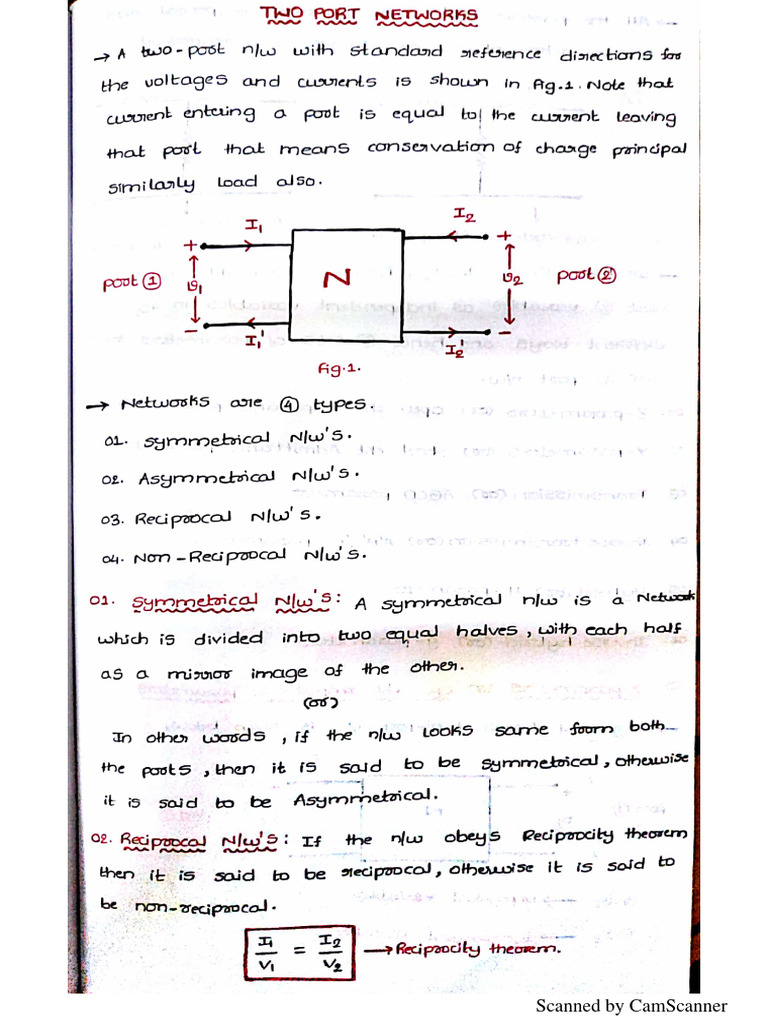 TWO PORT NETWORKS
→ A two-port n/w with standard reference directions for
the voltages and currents is shown in fig.1. Note that
current entering a port is equal to the current leaving
that port that means conservation of charge principal
similarly load also.
I₁ I₂
+ +
port ① υ₁ N υ₂ port ②
- -
I₁' I₂'
fig.1.
→ Networks are ④ types.
01. symmetrical N/w's.
02. Asymmetrical N/w's.
03. Reciprocal N/w's.
04. Non-Reciprocal N/w's.
01. Symmetrical N/w's: A symmetrical n/w is a Network
which is divided into two equal halves, with each half
as a mirror image of the other.
(or)
In other words, if the n/w looks same from both
the ports, then it is said to be symmetrical, otherwise
it is said to be Asymmetrical.
02. Reciprocal N/w's: If the n/w obeys Reciprocity theorem
then it is said to be reciprocal, otherwise it is said to
be non-reciprocal.
I₁/V₁ = I₂/V₂ → Reciprocity theorem.
Scanned by CamScanner